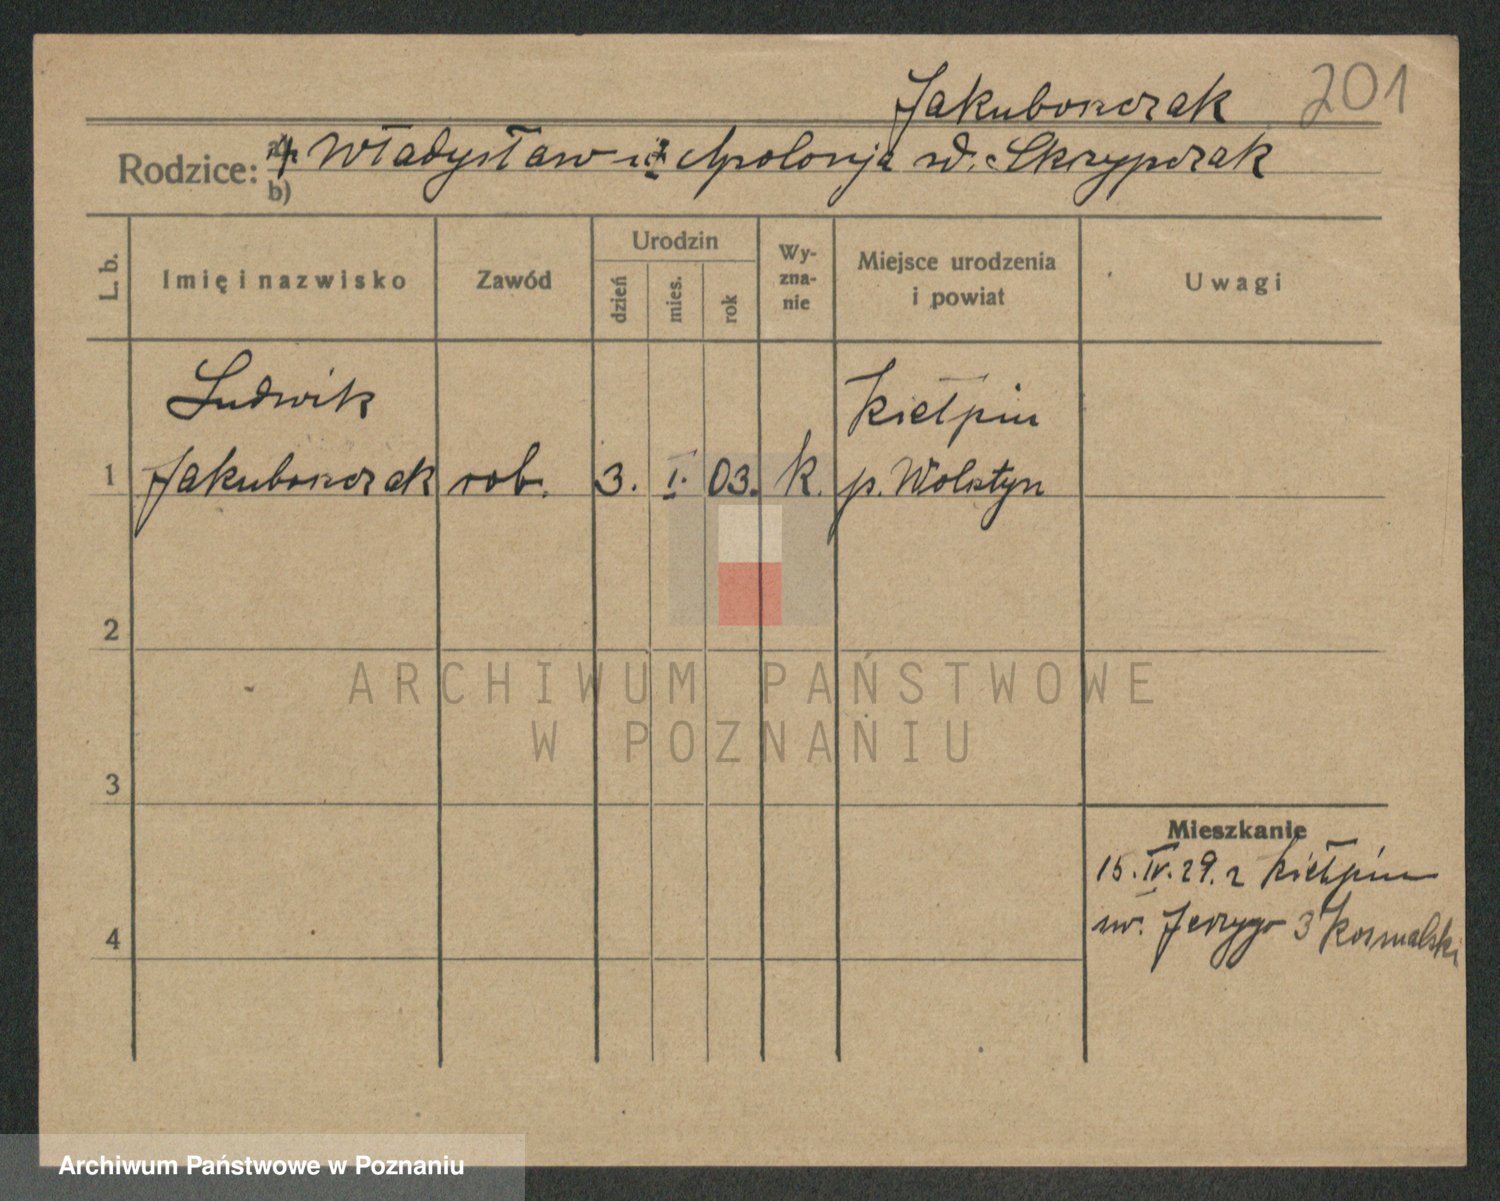 Jakubowczak 201
Rodzice: a) Władysław i Apolonja d. Skrzypczak
b)
L. b. Imię i nazwisko Zawód Urodzin dzień mies. rok Wyznanie Miejsce urodzenia i powiat Uwagi
Ludwik Kiełpin
1 Jakubowczak rob. 3. I. 03. k. p. Wolsztyn
2
ARCHIWUM PAŃSTWOWE
W POZNANIU
3
Mieszkanie
15.IV.29. z Kiełpin
św. Jerzego 3 Kosmalski
4
Archiwum Państwowe w Poznaniu